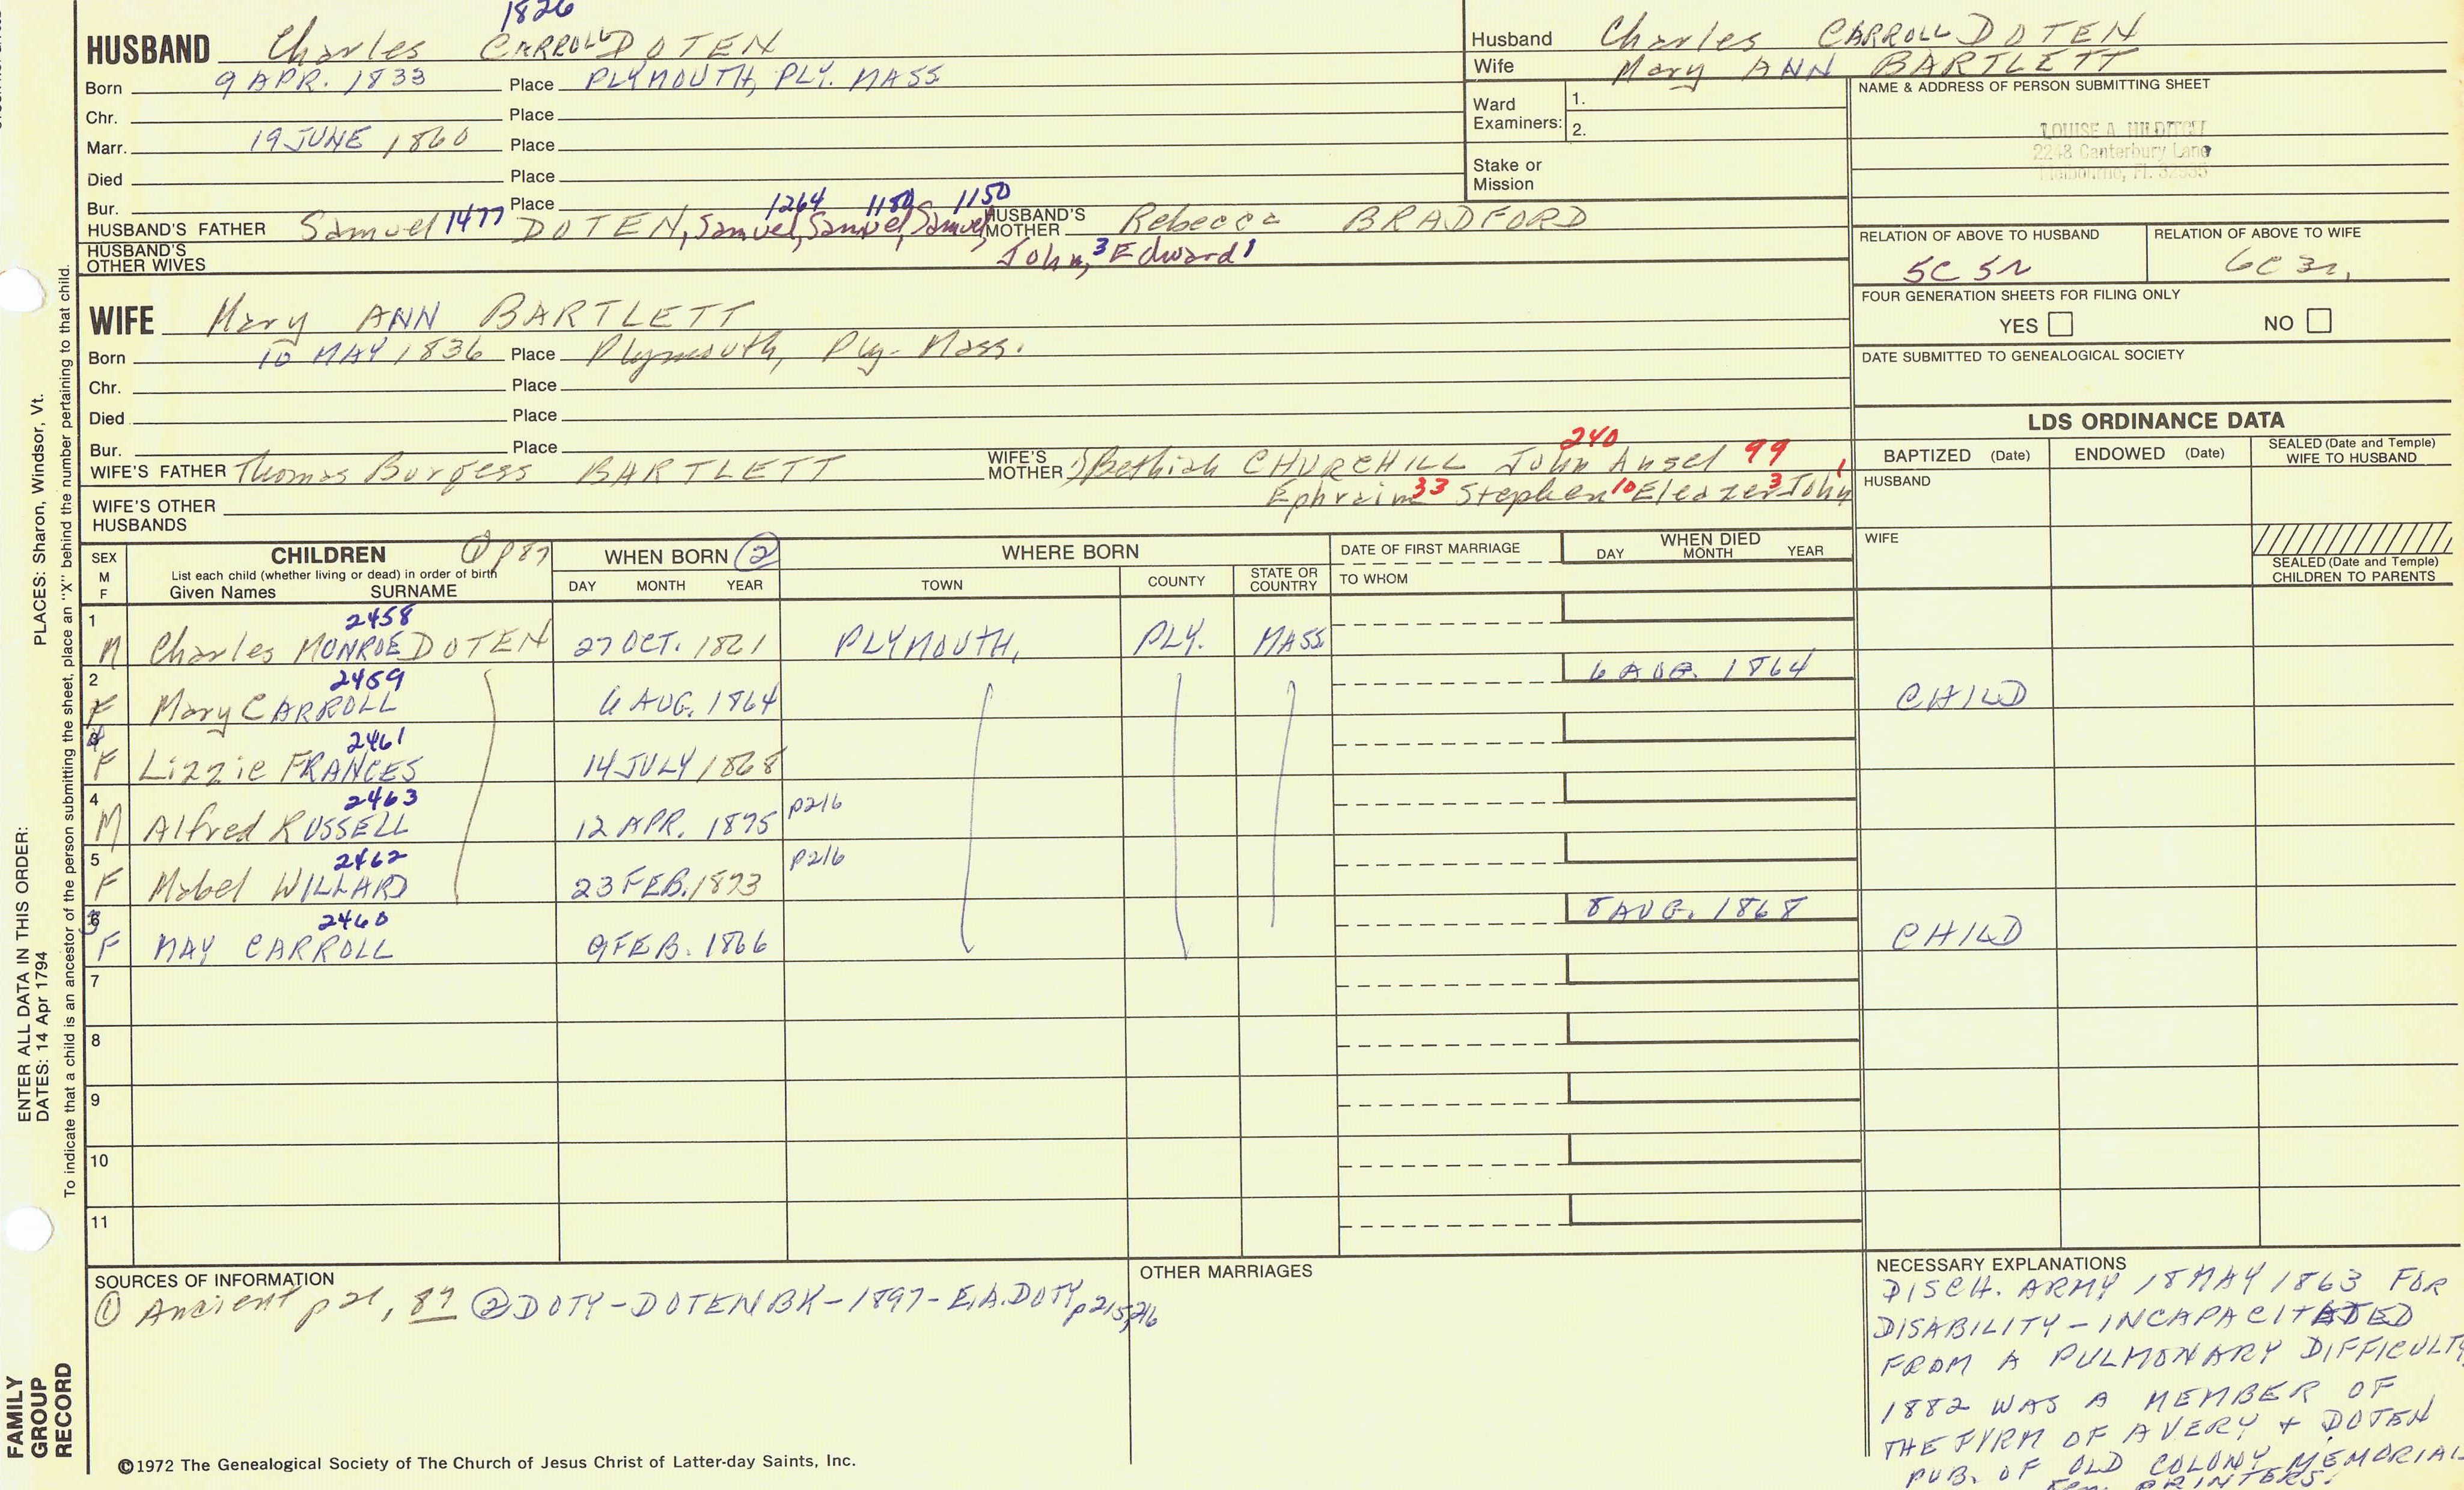 1826
HUSBAND Charles CARROLL DOTEN
Born 9 APR. 1833 Place PLYMOUTH, PLY. MASS
Chr. Place
Marr. 19 JUNE 1860 Place
Died Place
Bur. Place
1264 1150 1150
HUSBAND'S FATHER Samuel 1477 DOTEN, Samuel, Samuel, Samuel, HUSBAND'S MOTHER Rebecca BRADFORD
HUSBAND'S OTHER WIVES John, 3 Edward 1
Husband Charles CARROLL DOTEN
Wife Mary ANN BARTLETT
Ward Examiners: 1.
2.
Stake or Mission
NAME & ADDRESS OF PERSON SUBMITTING SHEET
LOUISE A. HILDITCH
2248 Canterbury Lane
Melbourne, Fl. 32935
RELATION OF ABOVE TO HUSBAND RELATION OF ABOVE TO WIFE
5C 5r 6C 3r.
FOUR GENERATION SHEETS FOR FILING ONLY
YES NO
DATE SUBMITTED TO GENEALOGICAL SOCIETY
WIFE Mary ANN BARTLETT
Born 10 MAY 1836 Place Plymouth, Ply. Mass.
Chr. Place
Died Place
Bur. Place
240
WIFE'S FATHER Thomas Burgess BARTLETT WIFE'S MOTHER Bethiah CHURCHILL John Ansel 99
Ephraim 33 Stephen 10 Eleazer 3 John 1
WIFE'S OTHER HUSBANDS
LDS ORDINANCE DATA
BAPTIZED (Date) ENDOWED (Date) SEALED (Date and Temple) WIFE TO HUSBAND
HUSBAND
WIFE
SEALED (Date and Temple) CHILDREN TO PARENTS
SEX M F CHILDREN ① p 87 WHEN BORN ② WHERE BORN DATE OF FIRST MARRIAGE WHEN DIED
List each child (whether living or dead) in order of birth
Given Names SURNAME DAY MONTH YEAR TOWN COUNTY STATE OR COUNTRY TO WHOM DAY MONTH YEAR
1 2458
M Charles MONROE DOTEN 27 OCT. 1861 PLYMOUTH, PLY. MASS
2 2459 6 AUG. 1864
F Mary CARROLL 6 AUG. 1864 CHILD
4 2461
F Lizzie FRANCES 14 JULY 1868
4 2463 p216
M Alfred RUSSELL 12 APR. 1875
5 2462 p216
F Mabel WILLARD 23 FEB. 1873
3 2460 8 AUG. 1868
F MAY CARROLL 9 FEB. 1866 CHILD
7
8
9
10
11
SOURCES OF INFORMATION
① Ancient p 21, 87 ② DOTY-DOTEN BK-1897-E.A. DOTY p215,216
OTHER MARRIAGES
NECESSARY EXPLANATIONS
DISCH. ARMY 18 MAY 1863 FOR
DISABILITY - INCAPACITATED
FROM A PULMONARY DIFFICULTY
1882 WAS A MEMBER OF
THE FIRM OF AVERY + DOTEN
PUB. OF OLD COLONY MEMORIAL
PRINTERS.
©1972 The Genealogical Society of The Church of Jesus Christ of Latter-day Saints, Inc.
PLACES: Sharon, Windsor, Vt.
ENTER ALL DATA IN THIS ORDER:
DATES: 14 Apr 1794
To indicate that a child is an ancestor of the person submitting the sheet, place an "X" behind the number pertaining to that child.
FAMILY
GROUP
RECORD